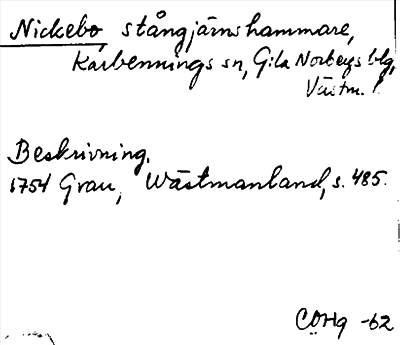 Nickebo stångjärnshammare,
Karbennings sn, Gila Norbergs blg,
Västm. l.
Beskrivning.
1754 Grau, Wästmanland, s. 485.
COHg -62